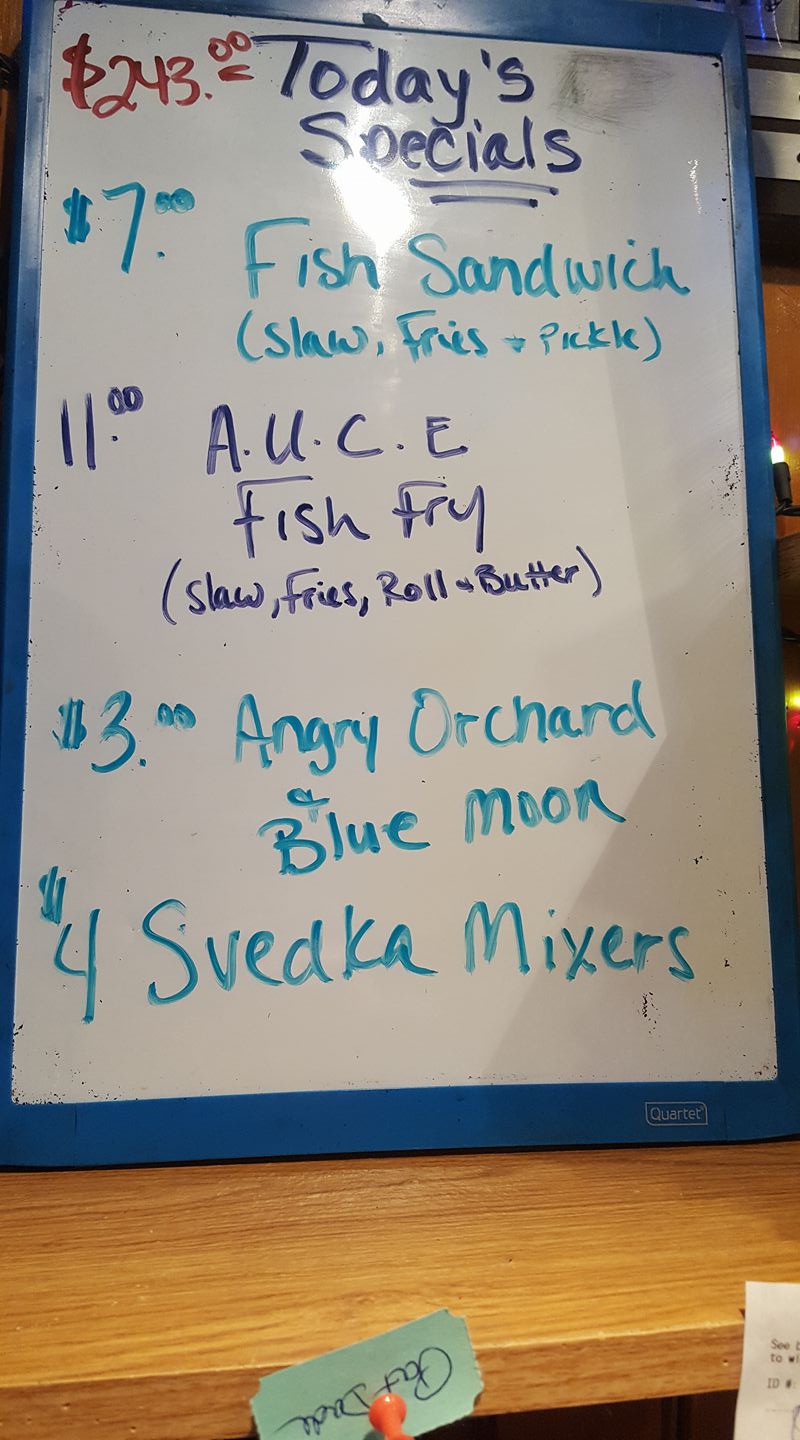 $243.00 Today's
Specials
$7.00
Fish Sandwich
(Slaw, Fries + Pickle)
11.00 A.U.C.E
Fish Fry
(Slaw, Fries, Roll + Butter)
$3.00 Angry Orchard
&
Blue Moon
$4 Svedka Mixers
Quartet
See
to wi
ID #: